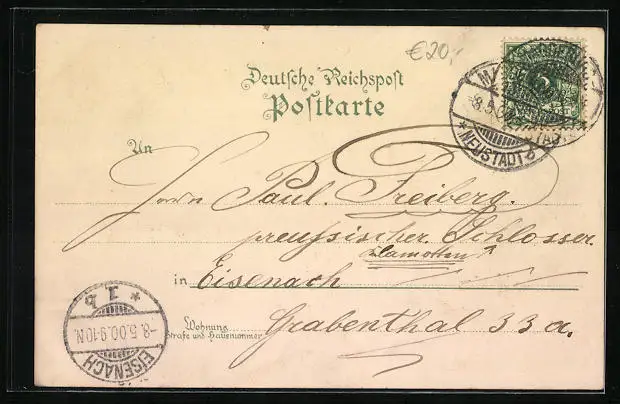 €20,-
Deutsche Reichspost
Postkarte
An
Herrn Paul Freiberg.
preussischer Schlosser
in Eisenach
Wohnung
Straße und Hausnummer
Grabenthal 33 a.
NEUSTADT
8.5.
* 1 b
-8.5.00.9-10N.
EISENACH